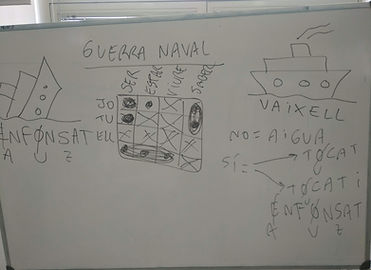 GUERRA NAVAL
SER ESTAR VIURE SABER
JO
TU
ELL
ENFONSAT
A U Z
VAIXELL
NO = AIGUA
SÍ = TOCAT
U
TOCAT i
U
ENFONSAT
A U Z